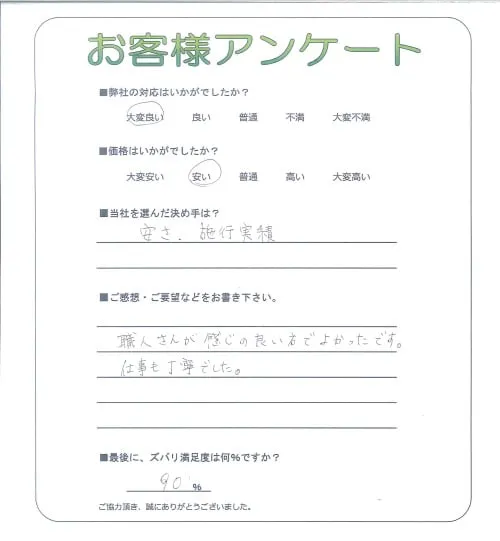 お客様アンケート
■弊社の対応はいかがでしたか?
大変良い 良い 普通 不満 大変不満
■価格はいかがでしたか?
大変安い 安い 普通 高い 大変高い
■当社を選んだ決め手は?
安さ、施行実積
■ご感想・ご要望などをお書き下さい。
職人さんが感じの良い方でよかったです。
仕事も丁寧でした。
■最後に、ズバリ満足度は何%ですか?
90 %
ご協力頂き、誠にありがとうございました。